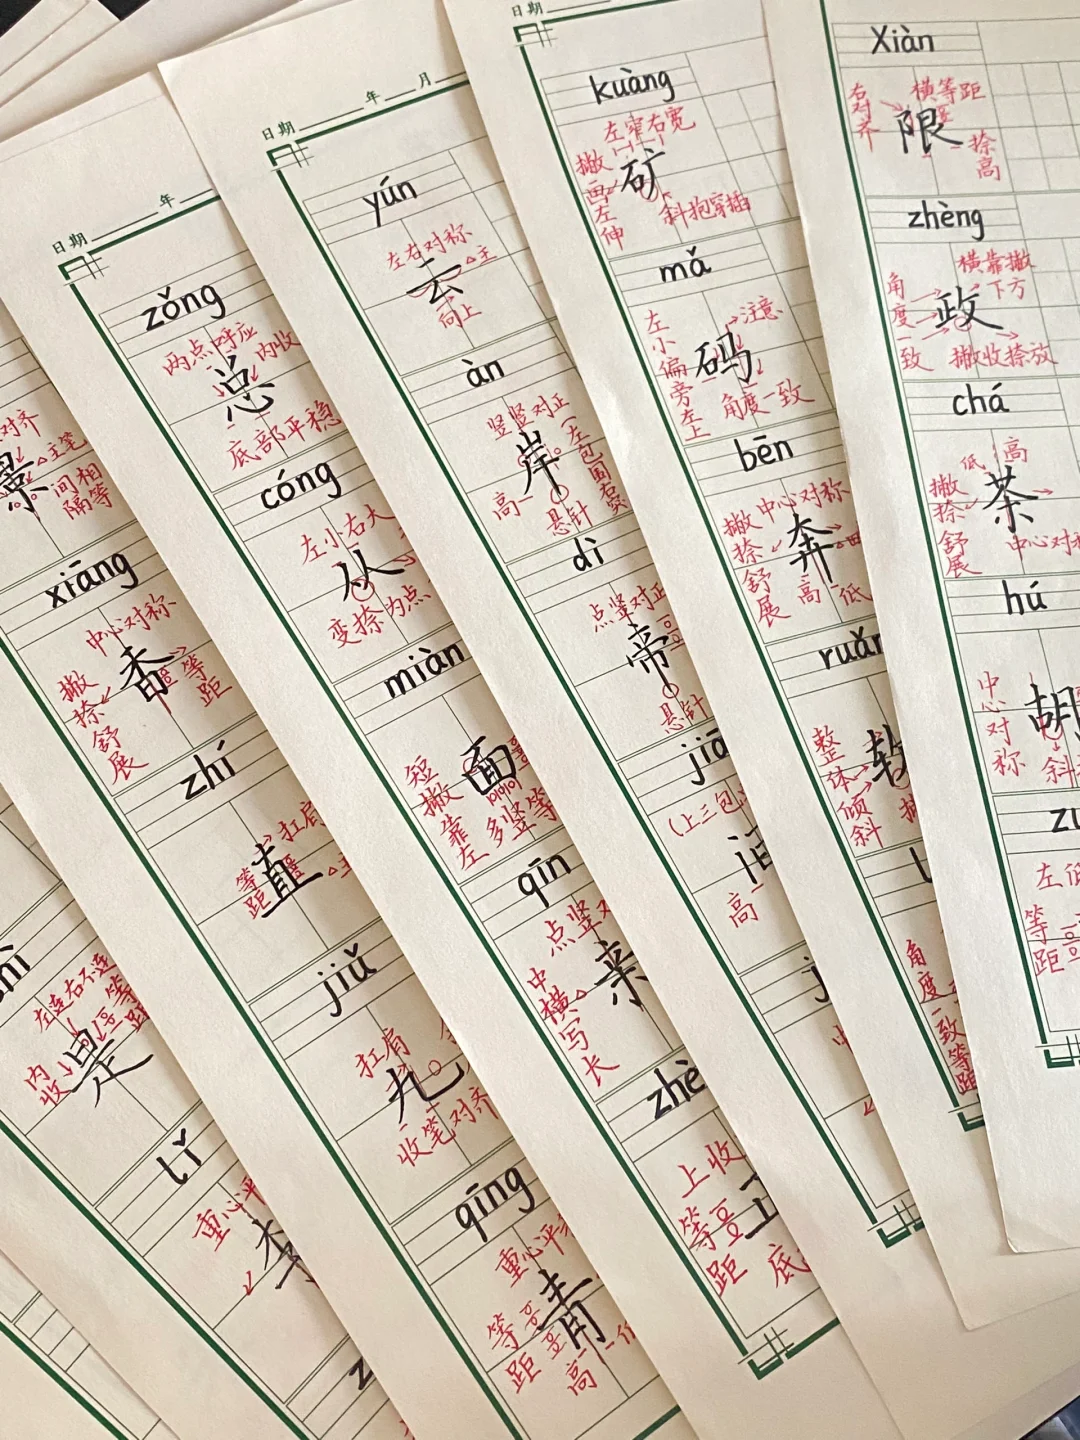 对齐
△主笔
景
间相
隔等
xiāng
中心对称
香
撇捺舒展
等距
左连右不连
等距
是
内收
lǐ
重心平
李
日期 年
zǒng
两点呼应
内收
总
底部平稳
cóng
左小右大
从
变捺为点
zhí
扛肩
直
等距
△主
jiǔ
扛肩
九
收笔对齐
qīng
重心平
青
等距
高
日期 年 月
yún
左右对称
△主
云
向上
àn
竖竖对正
左包围右突
岸
高
悬针
miàn
面
短撇靠左
多竖等
qīn
点竖对
亲
中横写长
zhè
上收
等距
底
日期
kuàng
左窄右宽
矿
撇画左伸
斜抱穿插
dì
点竖对正
帝
悬针
mǎ
注意
码
左小偏旁左上
角度一致
bēn
中心对称
奔
撇捺舒展
高
低
(上三包
高
ruǎn
软
整体倾斜
角度一致等距
Xiàn
右对齐
横等距
限
捺高
zhèng
横靠撇
下方
政
角度一致
撇收捺放
chá
低
高
茶
撇捺舒展
中心对称
hú
胡
中心对称
斜
左低
等距